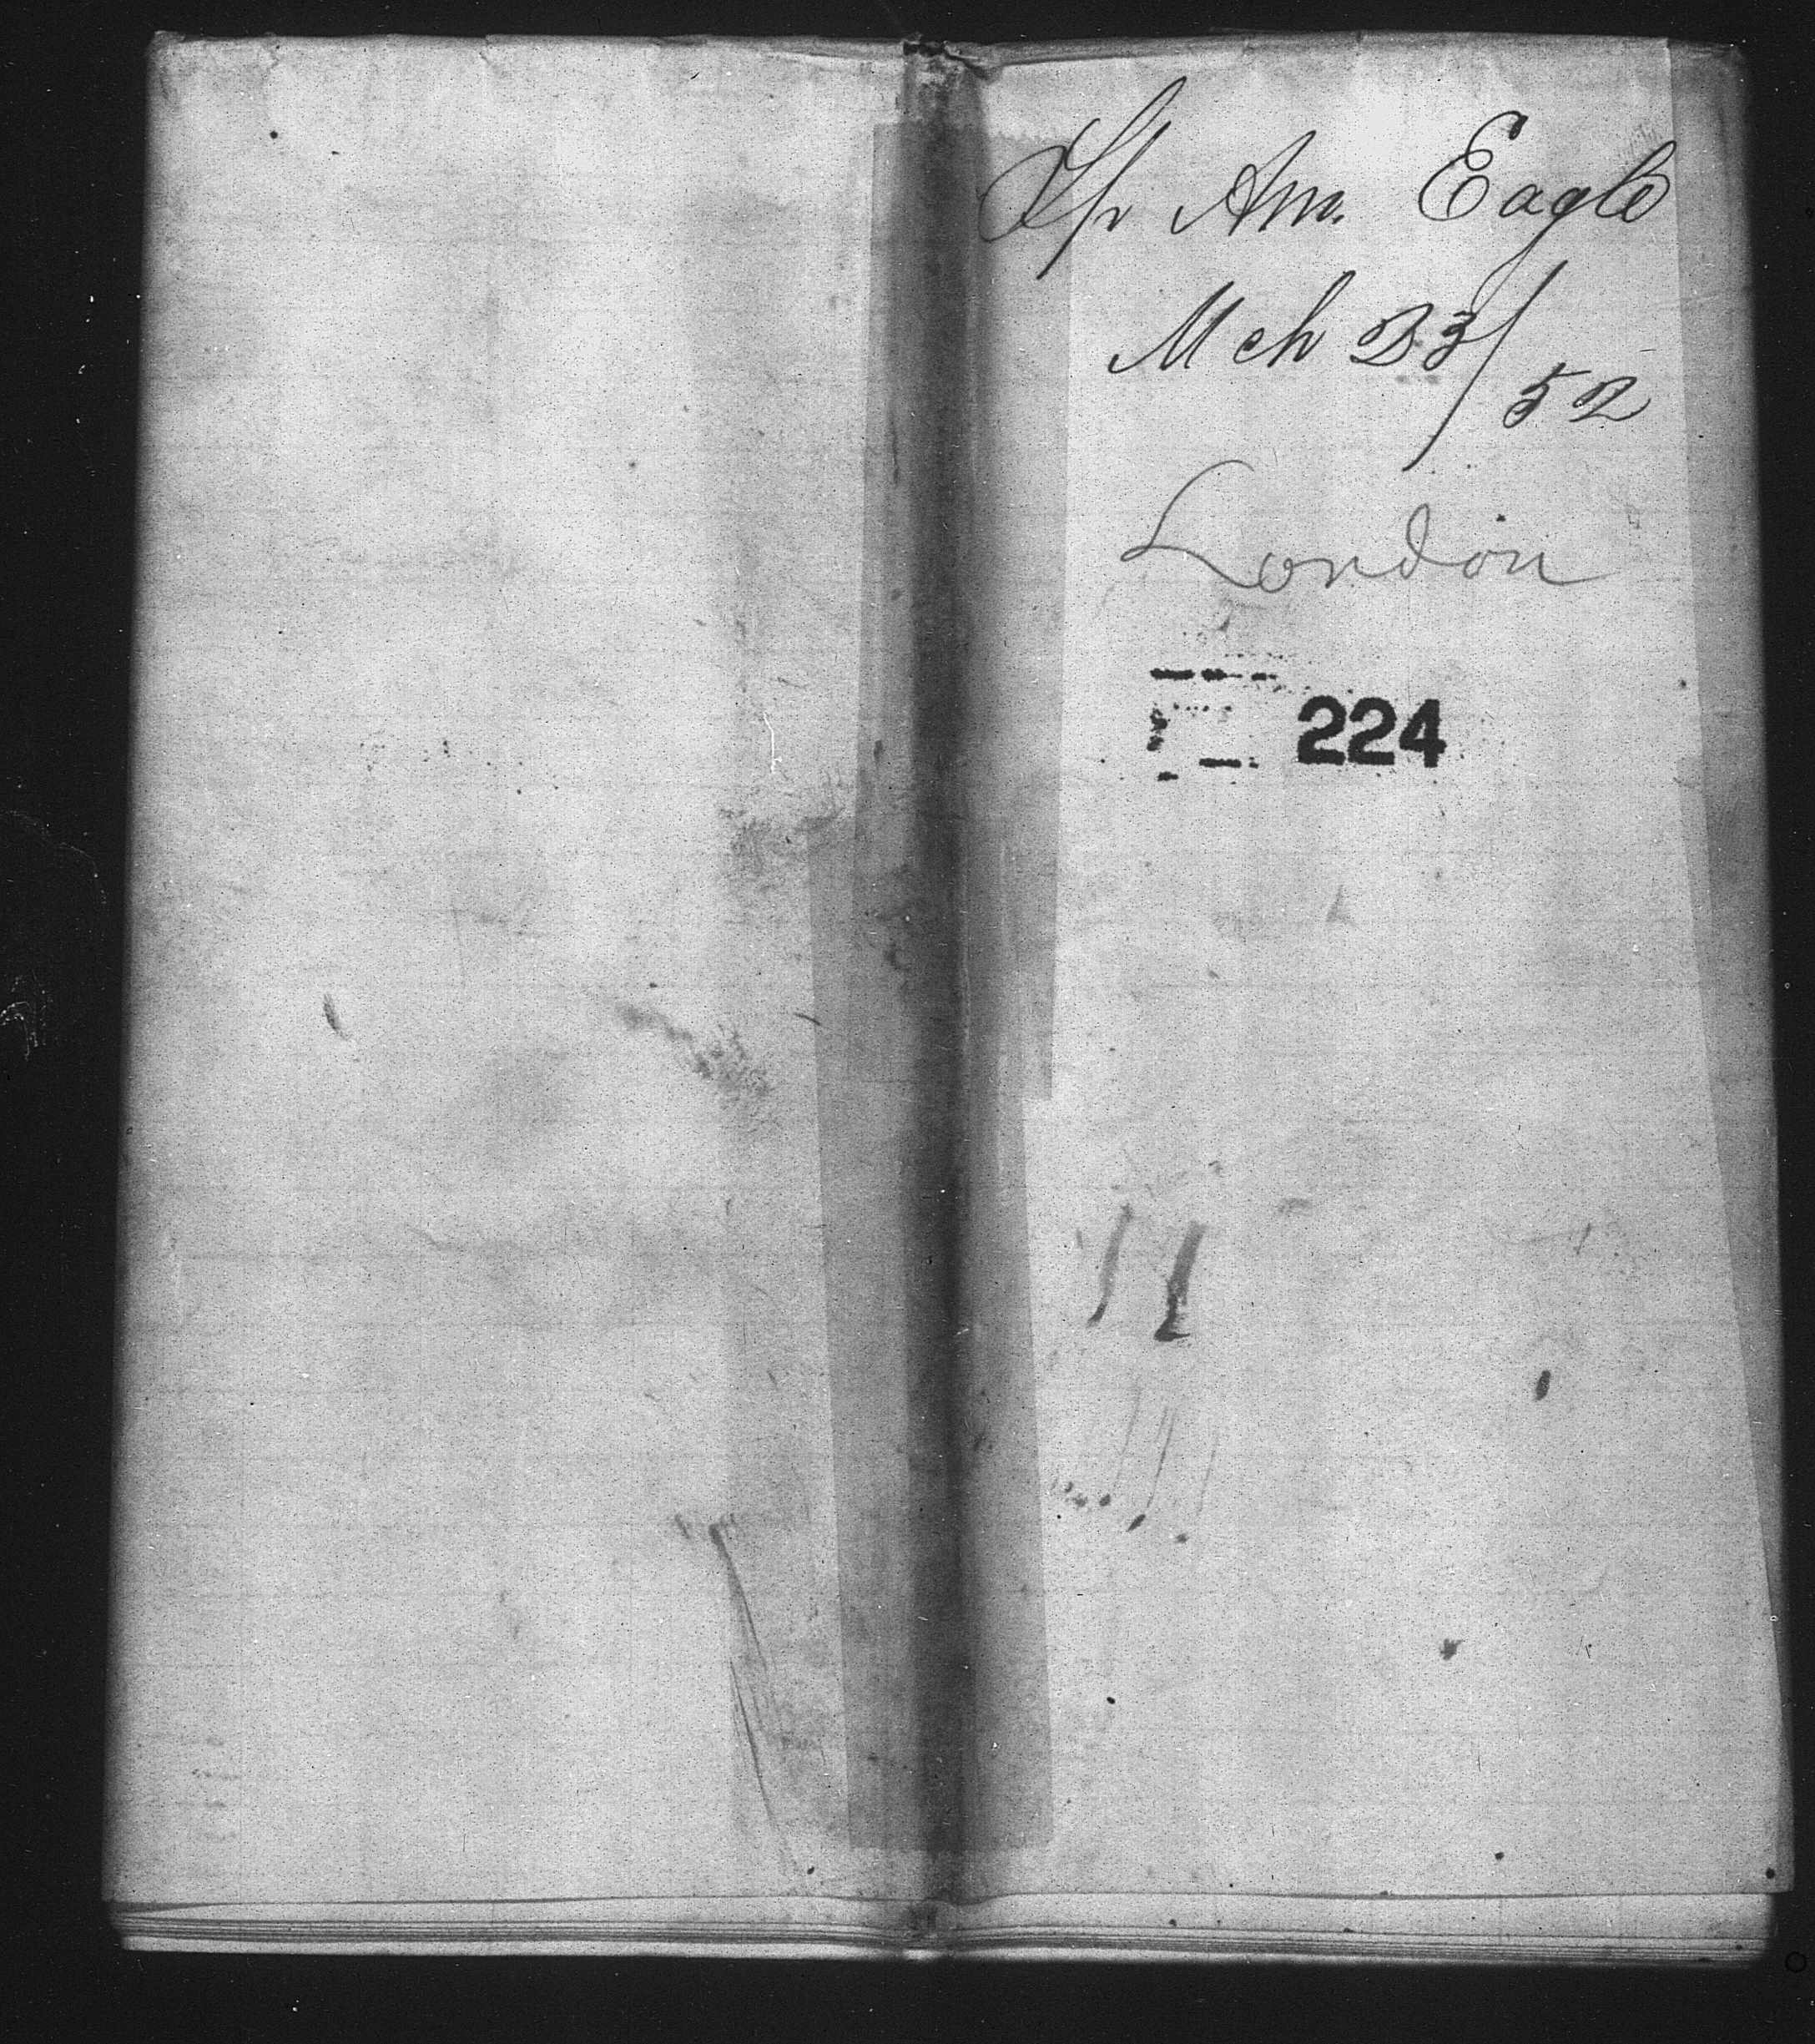 Shp Am. Eagle
Mch 23/52
London
224